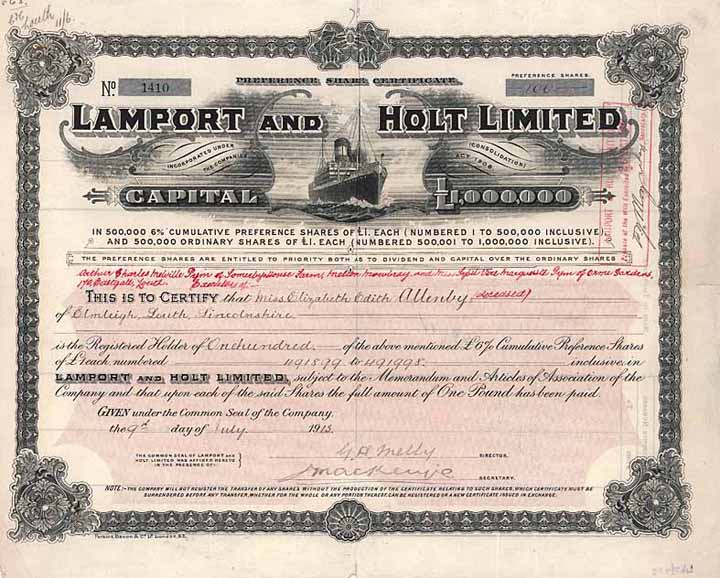 Louth 11/6.
PREFERENCE SHARE CERTIFICATE.
No 1410
PREFERENCE SHARES.
100
LAMPORT AND HOLT LIMITED
INCORPORATED UNDER THE COMPANIES (CONSOLIDATION) ACT 1908
CAPITAL £1,000,000
IN 500,000 6% CUMULATIVE PREFERENCE SHARES OF £1. EACH (NUMBERED 1 TO 500,000 INCLUSIVE).
AND 500,000 ORDINARY SHARES OF £1. EACH (NUMBERED 500,001 TO 1,000,000 INCLUSIVE).
THE PREFERENCE SHARES ARE ENTITLED TO PRIORITY BOTH AS TO DIVIDEND AND CAPITAL OVER THE ORDINARY SHARES
Arthur Charles Melville Pym of Somerby House Farm, Melton Mowbray and Miss Sybil Margaret Pym of Gardens,
Eastgate, Louth. Executors of
THIS IS TO CERTIFY that Miss Elizabeth Edith Allenby (deceased)
of Elmleigh, Louth, Lincolnshire
is the Registered Holder of One hundred of the above mentioned £6% Cumulative Preference Shares
of £1 each, numbered 491899 to 491998 inclusive, in
LAMPORT AND HOLT LIMITED, subject to the Memorandum and Articles of Association of the
Company and that upon each of the said Shares the full amount of One Pound has been paid.
GIVEN under the Common Seal of the Company.
the 9th day of July 1913.
THE COMMON SEAL OF LAMPORT AND
HOLT LIMITED WAS AFFIXED HERETO
IN THE PRESENCE OF:
G H Melly
DIRECTOR.
Mackenzie
SECRETARY.
NOTE:- THE COMPANY WILL NOT REGISTER THE TRANSFER OF ANY SHARES WITHOUT THE PRODUCTION OF THE CERTIFICATE RELATING TO SUCH SHARES, WHICH CERTIFICATE MUST BE
SURRENDERED BEFORE ANY TRANSFER, WHETHER FOR THE WHOLE OR ANY PORTION THEREOF, CAN BE REGISTERED OR A NEW CERTIFICATE ISSUED IN EXCHANGE.
Perkins, Bacon & Co Ld London, E.C.